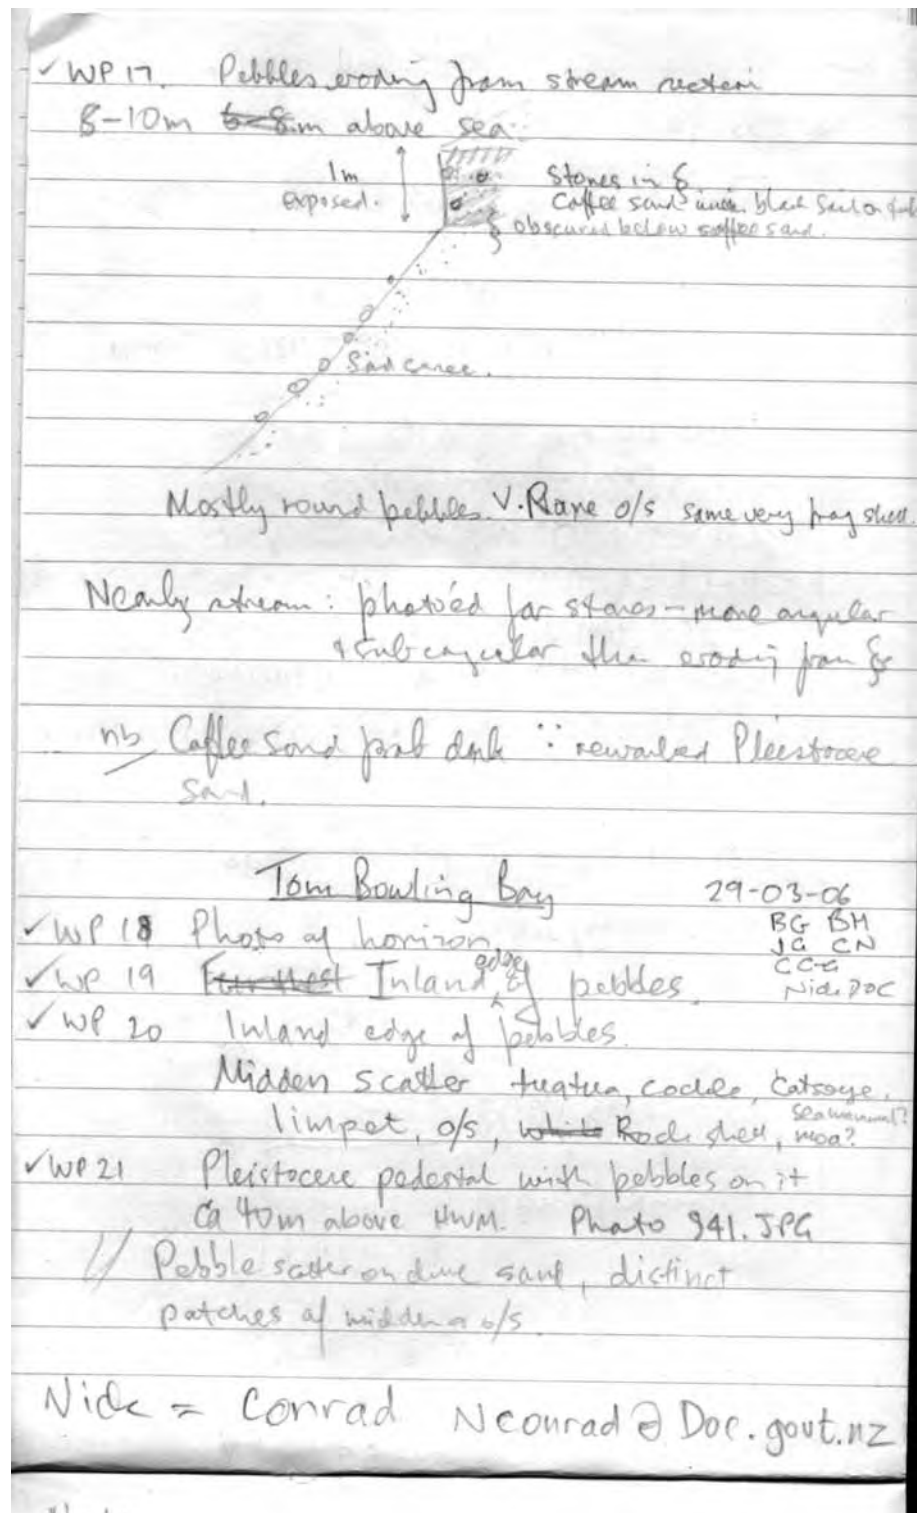 ✓ WP 17. Pebbles eroding from stream section
8-10m 6-8m above sea
1m
exposed.
Stones in
Coffee sand black sand on
obscured below coffee sand.
Sand scree.
Mostly round pebbles. V. Rare o/s some very frag shell.
Nearby stream: photo'ed for stones - more angular
+ subangular than eroding from
nb Coffee sand prob dark ∵ reworked Pleistocene
Sand.
Tom Bowling Bay 29-03-06
BG BH
JG CN
CCG
Nick DOC
✓ WP 18 Photo of horizon.
✓ WP 19 Furthest Inland edge of pebbles.
✓ WP 20 Inland edge of pebbles.
Midden scatter tuatua, cockle, Catseye,
limpet, o/s, white Rock shell, seamammal? moa?
✓ WP 21 Pleistocene pedestal with pebbles on it
Ca 40m above HWM. Photo 941.JPG
// Pebble scatter on dune sand, distinct
patches of midden o/s.
Nick = Conrad Nconrad@Doc.govt.nz